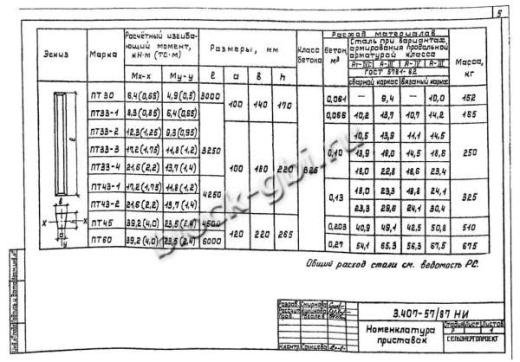 5
Эскиз
Марка
Расчётный изгибающий момент, кН·м (ТС·м)
Мх-х
Му-у
Размеры, мм
ℓ
а
в
h
Класс бетона
Бетон, м³
Расход материалов
Сталь при вариантах армирования продольной арматурой класса
Ат-IVC
А-III
Ат-IV
А-III
ГОСТ 5781-82
сварной каркас
вязаный каркас
Масса, кг
ПТ 30 6,4(0,65) 4,9(0,5) 3000 0,061 — 9,4 — 10,0 152
ПТ33-1 8,3(0,85) 6,4(0,65) 100 140 170 0,066 10,2 13,7 10,7 14,2 165
ПТ33-2 12,3(1,25) 9,3(0,95) 10,5 13,9 11,1 14,5
ПТ33-3 17,2(1,75) 11,8(1,2) 3250 0,10 13,9 18,0 14,5 18,6 250
ПТ33-4 21,6(2,2) 13,7(1,4) 100 180 220 В25 18,0 22,8 18,6 23,4
ПТ43-1 17,2(1,75) 11,8(1,2) 4250 0,13 18,0 23,3 18,8 24,1 325
ПТ43-2 21,6(2,2) 13,7(1,4) 23,3 29,6 24,1 30,4
ПТ45 39,2(4,0) 23,5(2,4) 4500 120 220 265 0,203 40,9 49,1 42,5 50,8 510
ПТ60 39,2(4,0) 23,5(2,4) 6000 0,27 54,1 65,3 56,3 67,5 675
Общий расход стали см. ведомость РС.
block-gbi.ru
3.407-57/87 НИ
Номенклатура приставок
Стадия Лист Листов
Р 1
СЕЛЬЭНЕРГОПРОЕКТ
Разраб. Смирнова
Н.контр. Солнцева